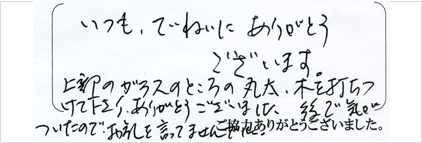 いつも、ていねいに ありがとう
ございます。
上部のガラスのところの丸太、木を打ちつ
けて下さり、ありがとうございました。後で気が
ついたのでお礼を言ってませんでした。
ご協力ありがとうございました。